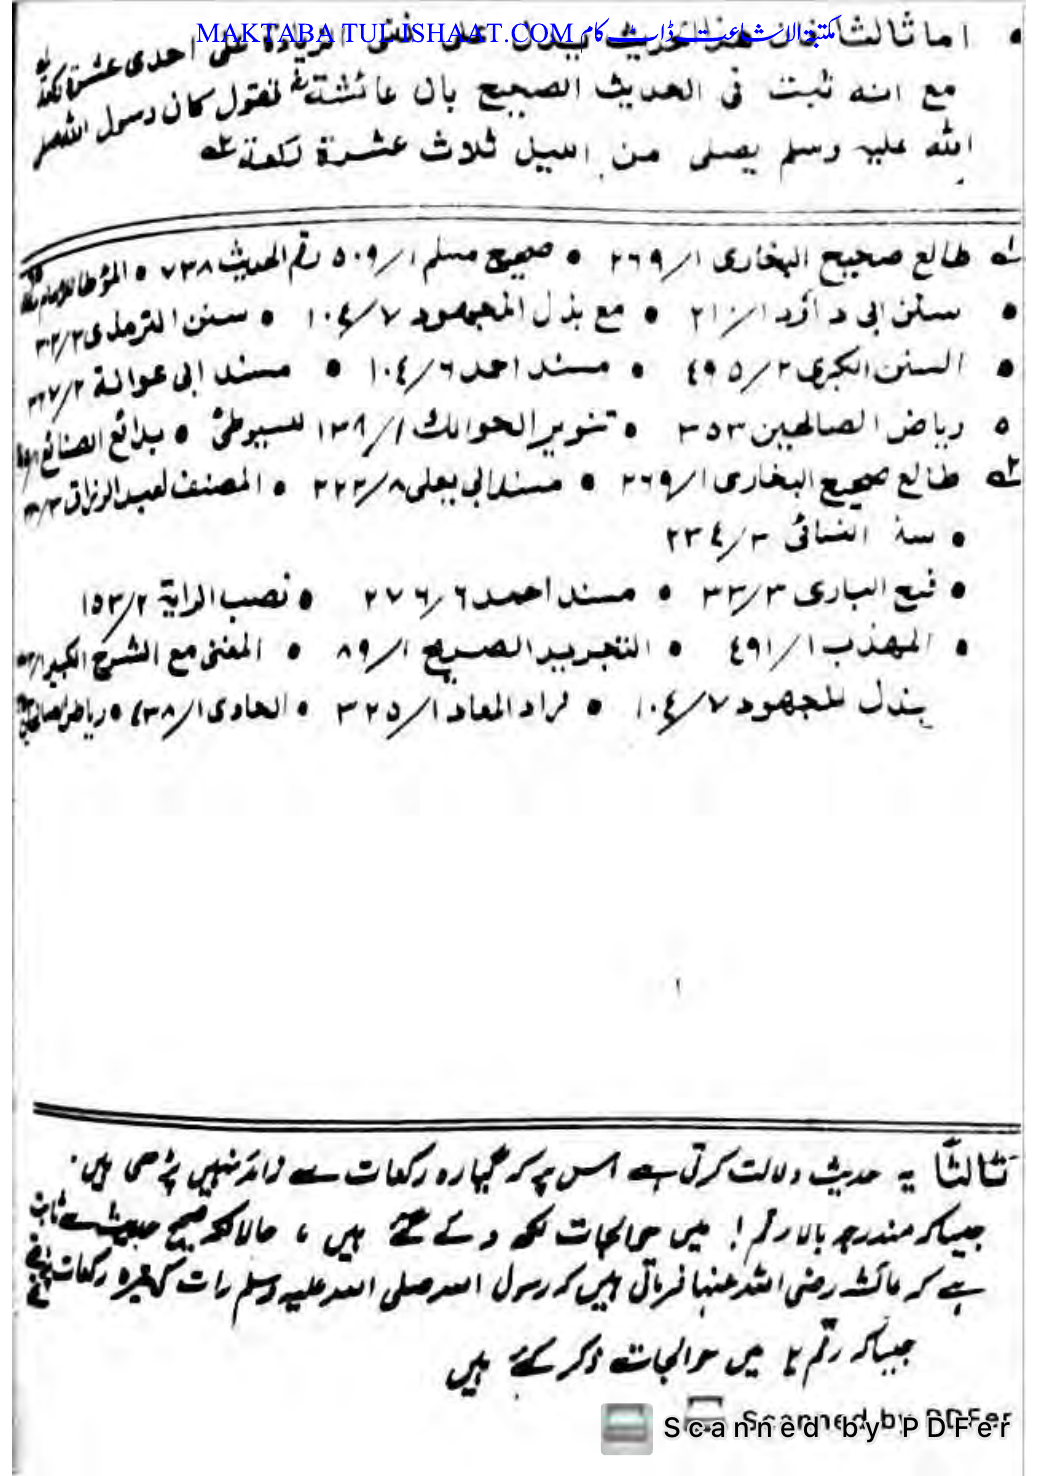 MAKTABA TUL ISHAAT.COM مکتبۃ الاشاعت ڈاٹ کام
• اما ثالثا فان هذا الحديث يدل على نفى الزيادة على احدى عشرة ركعة
مع انه ثبت فى الحديث الصحيح بان عائشة تقول كان رسول الله صلى
الله عليه وسلم يصلى من الليل ثلاث عشرة ركعة
طالع صحيح البخارى ١/٢٦٩ • صحيح مسلم ١/٥٠٩ رقم الحديث ٧٣٨ • المؤطا للامام
• سنن ابى داؤد ١/٢١٠ • مع بذل المجهود ٧/١٠٤ • سنن الترمذى ٢/٣٠٢
• السنن الكبرى ٢/٤٩٥ • مسند احمد ٦/١٠٤ • مسند ابى عوانة ٢/٣٢٧
• رياض الصالحين ٣٥٣ • تنوير الحوالك ١/١٣٨ للسيوطى • بدائع الصنائع
طالع صحيح البخارى ١/٢٦٩ • مسند ابى يعلى ٨/٢٢٢ • المصنف لعبد الرزاق
• النسائى ٣/٢٣٤
• فتح البارى ٣/٣٣ • مسند احمد ٦/٢٧٦ • نصب الراية ٢/١٥٣
• المهذب ١/٤٩١ • التجريد الصريح ١/٨٩ • المغنى مع الشرح الكبير
بذل المجهود ٧/١٠٤ • زاد المعاد ١/٣٢٥ • الحاوى ١/ • رياض الصالحين
ثالثًا یہ حدیث دلالت کرتی ہے اس پر کہ گیارہ رکعات سے زائد نہیں پڑھی ہیں۔
جیسا کہ مندرجہ بالا رقم ۱ میں حوالجات لکھ دئے گئے ہیں ، حالانکہ صحیح حدیث سے ثابت
ہے کہ عائشہ رضی اللہ عنہا فرماتی ہیں کہ رسول اللہ صلی اللہ علیہ وسلم رات کی تیرہ رکعات پڑھتے تھے
جیسا کہ رقم ۲ میں حوالجات ذکر کئے ہیں
Scanned by PDFer